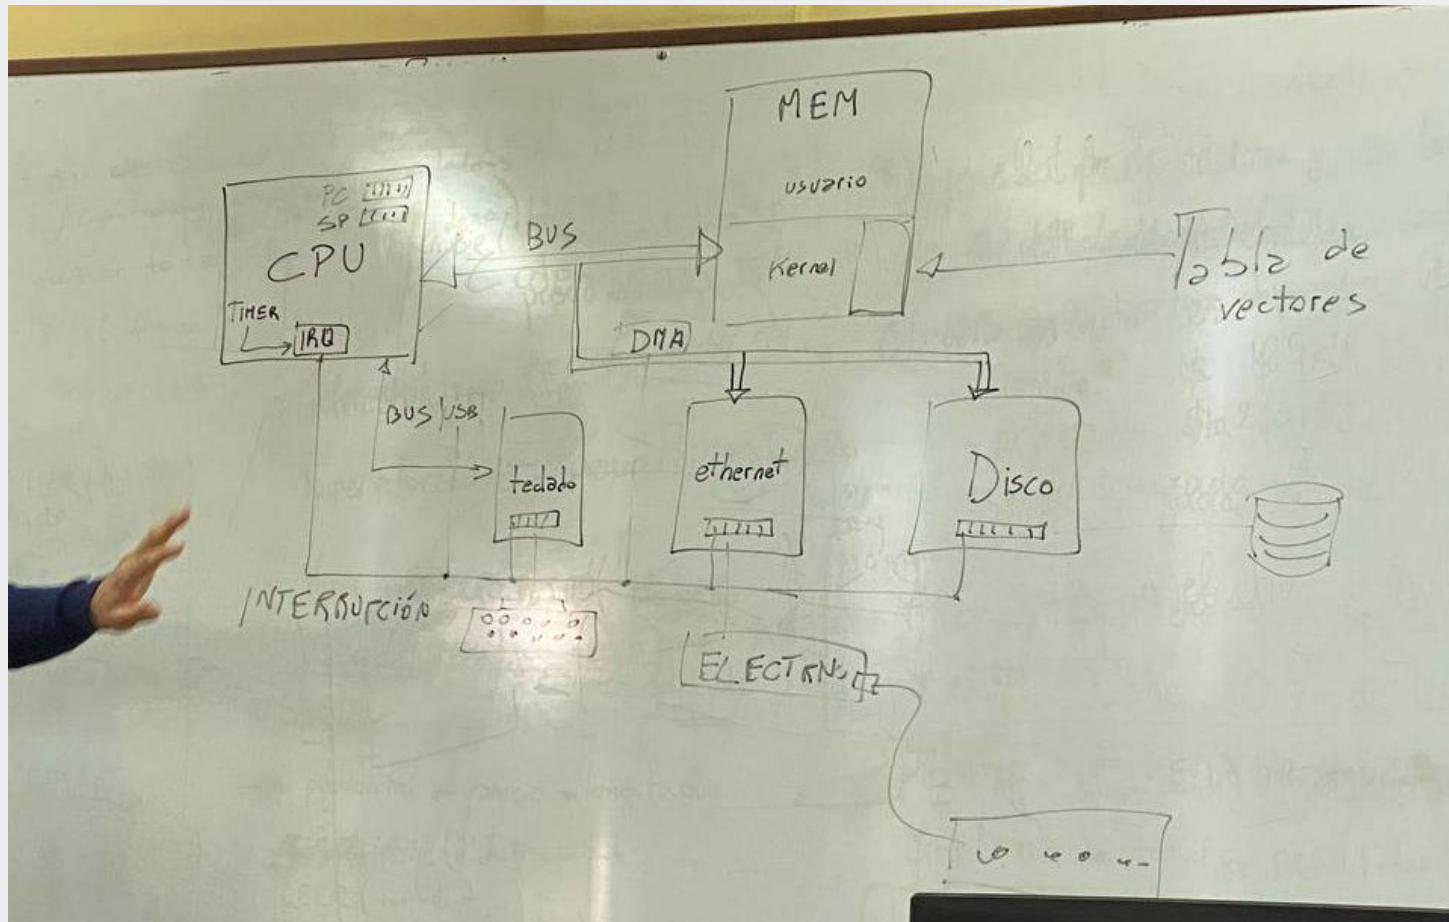 MEM
usuario
Kernel
Tabla de
vectores
PC
SP
CPU
TIMER
IRQ
BUS
DMA
BUS USB
teclado
ethernet
Disco
INTERRUPCIÓN